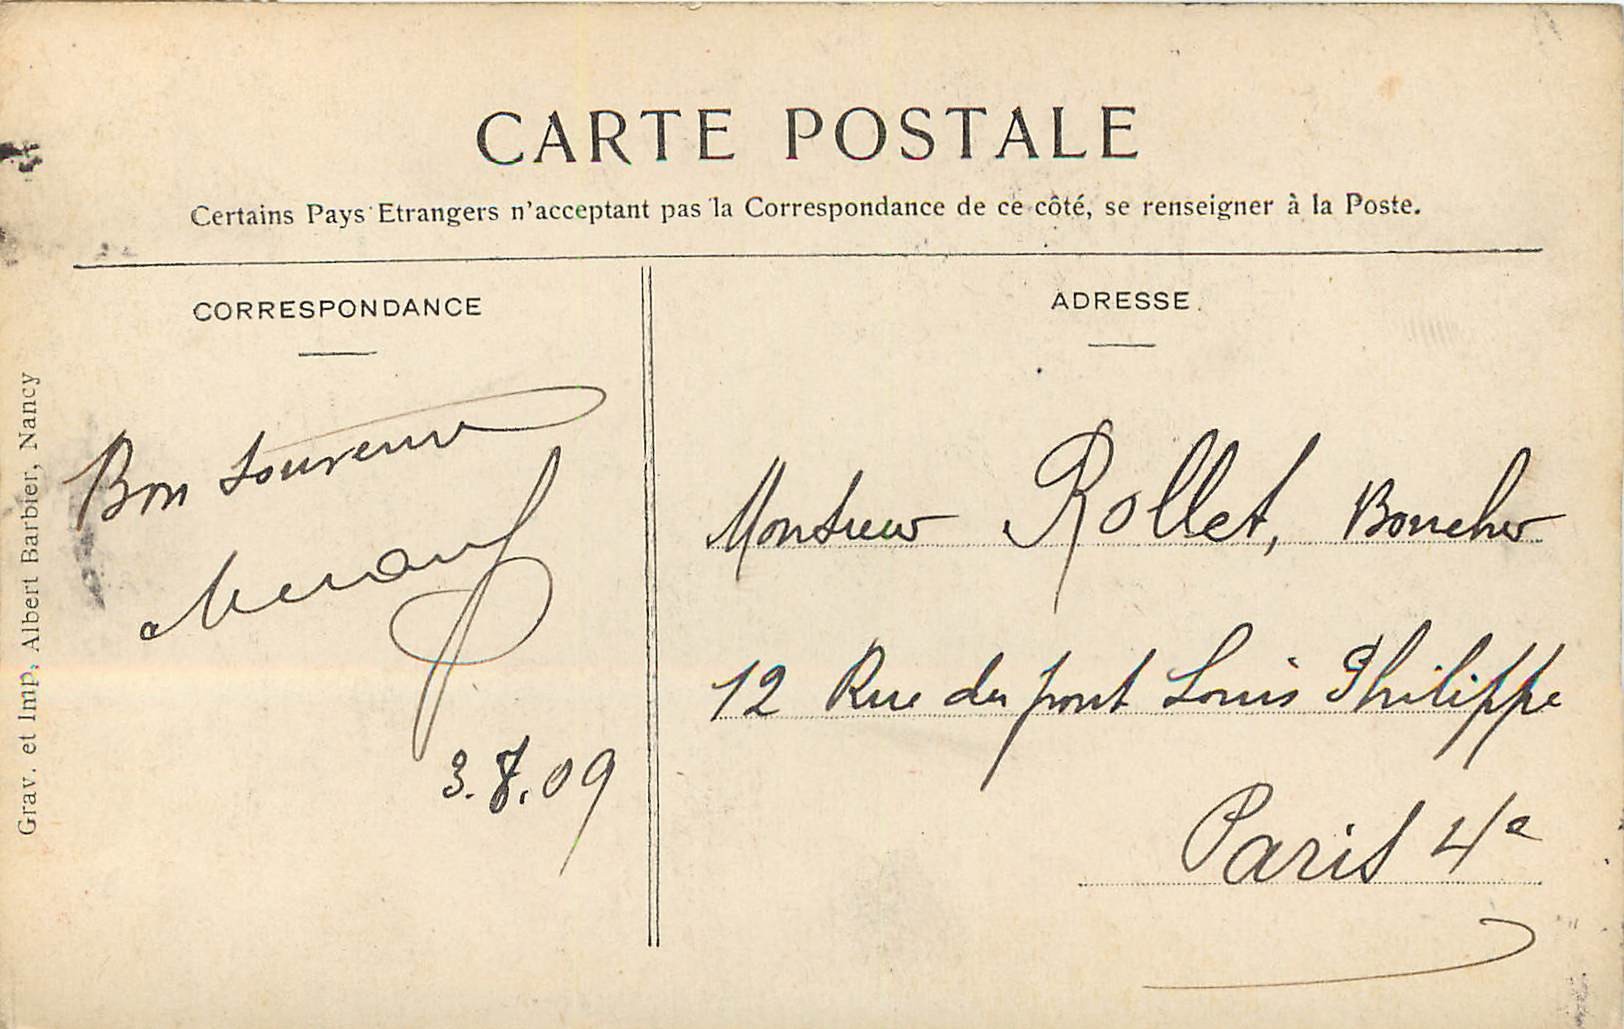 CARTE POSTALE
Certains Pays Etrangers n'acceptant pas la Correspondance de ce côté, se renseigner à la Poste.
CORRESPONDANCE
Bon souvenir
3.8.09
ADRESSE
Monsieur Rollet, Boucher
12 Rue du pont Louis Philippe
Paris 4e
Grav. et Imp. Albert Barbier, Nancy